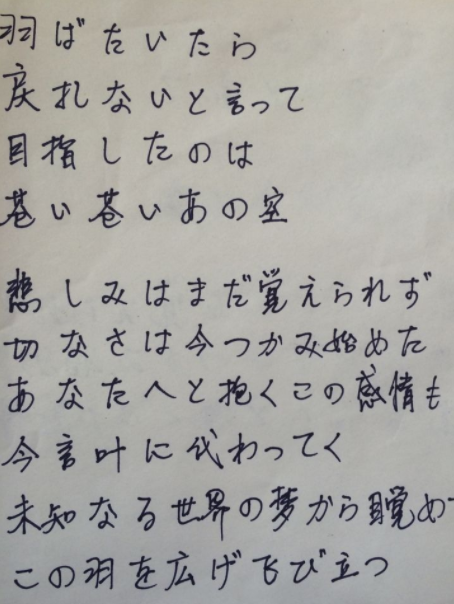 羽ばたいたら
戻れないと言って
目指したのは
蒼い蒼いあの空
悲しみはまだ覚えられず
切なさは今つかみ始めた
あなたへと抱くこの感情も
今言叶に代わってく
未知なる世界の夢から目覚め
この羽を広げ飞び立つ